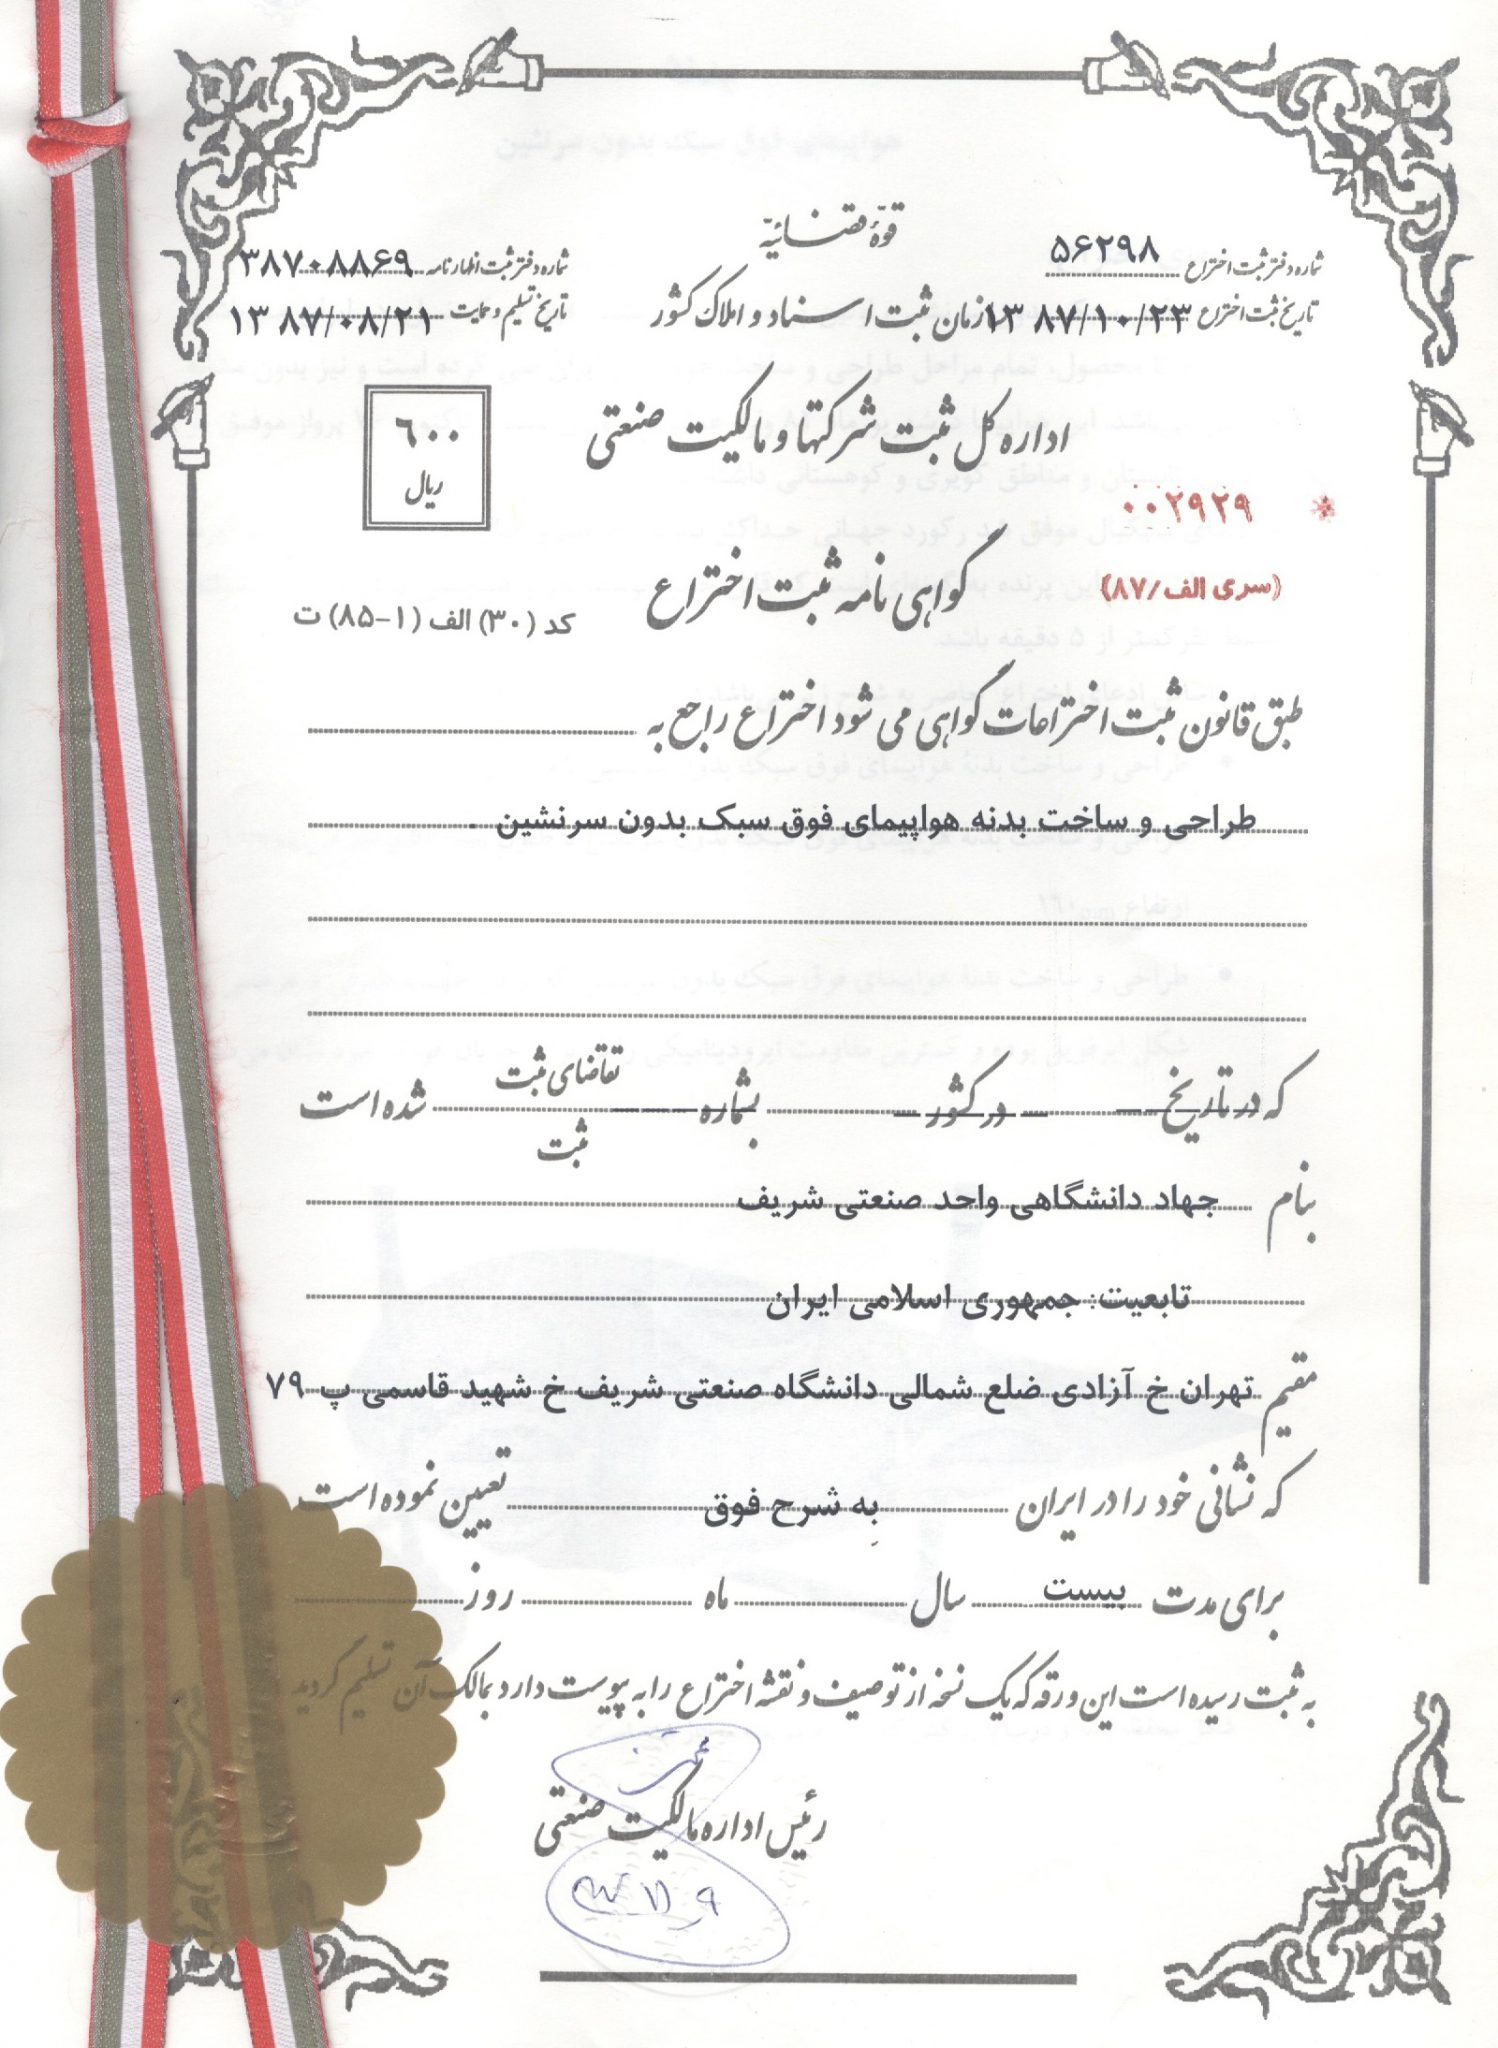 قوّهٔ قضائیّه
شماره دفتر ثبت اختراع ۵۶۲۹۸
شماره دفتر ثبت اظهارنامه ۳۸۷۰۸۸۶۹
تاریخ ثبت اختراع ۱۳۸۷/۱۰/۲۳
سازمان ثبت اسناد و املاک کشور
تاریخ تسلیم و حمایت ۱۳۸۷/۰۸/۲۱
اداره کل ثبت شرکتها و مالکیت صنعتی
۶۰۰
ریال
۰۰۲۹۲۹ *
(سری الف/۸۷)
گواهی نامه ثبت اختراع
کد (۳۰) الف (۱-۸۵) ت
طبق قانون ثبت اختراعات گواهی می شود اختراع راجع به
طراحی و ساخت بدنه هواپیمای فوق سبک بدون سرنشین .
که در تاریخ در کشور بشماره تقاضای ثبت شده است
ثبت
بنام جهاد دانشگاهی واحد صنعتی شریف
تابعیت: جمهوری اسلامی ایران
مقیم تهران خ آزادی ضلع شمالی دانشگاه صنعتی شریف خ شهید قاسمی پ ۷۹
که نشانی خود را در ایران به شرح فوق تعیین نموده است
برای مدت بیست سال ماه روز
به ثبت رسیده است این ورقه که یک نسخه از توصیف و نقشه اختراع را به پیوست دارد بمالک آن تسلیم گردید
رئیس اداره مالکیت صنعتی